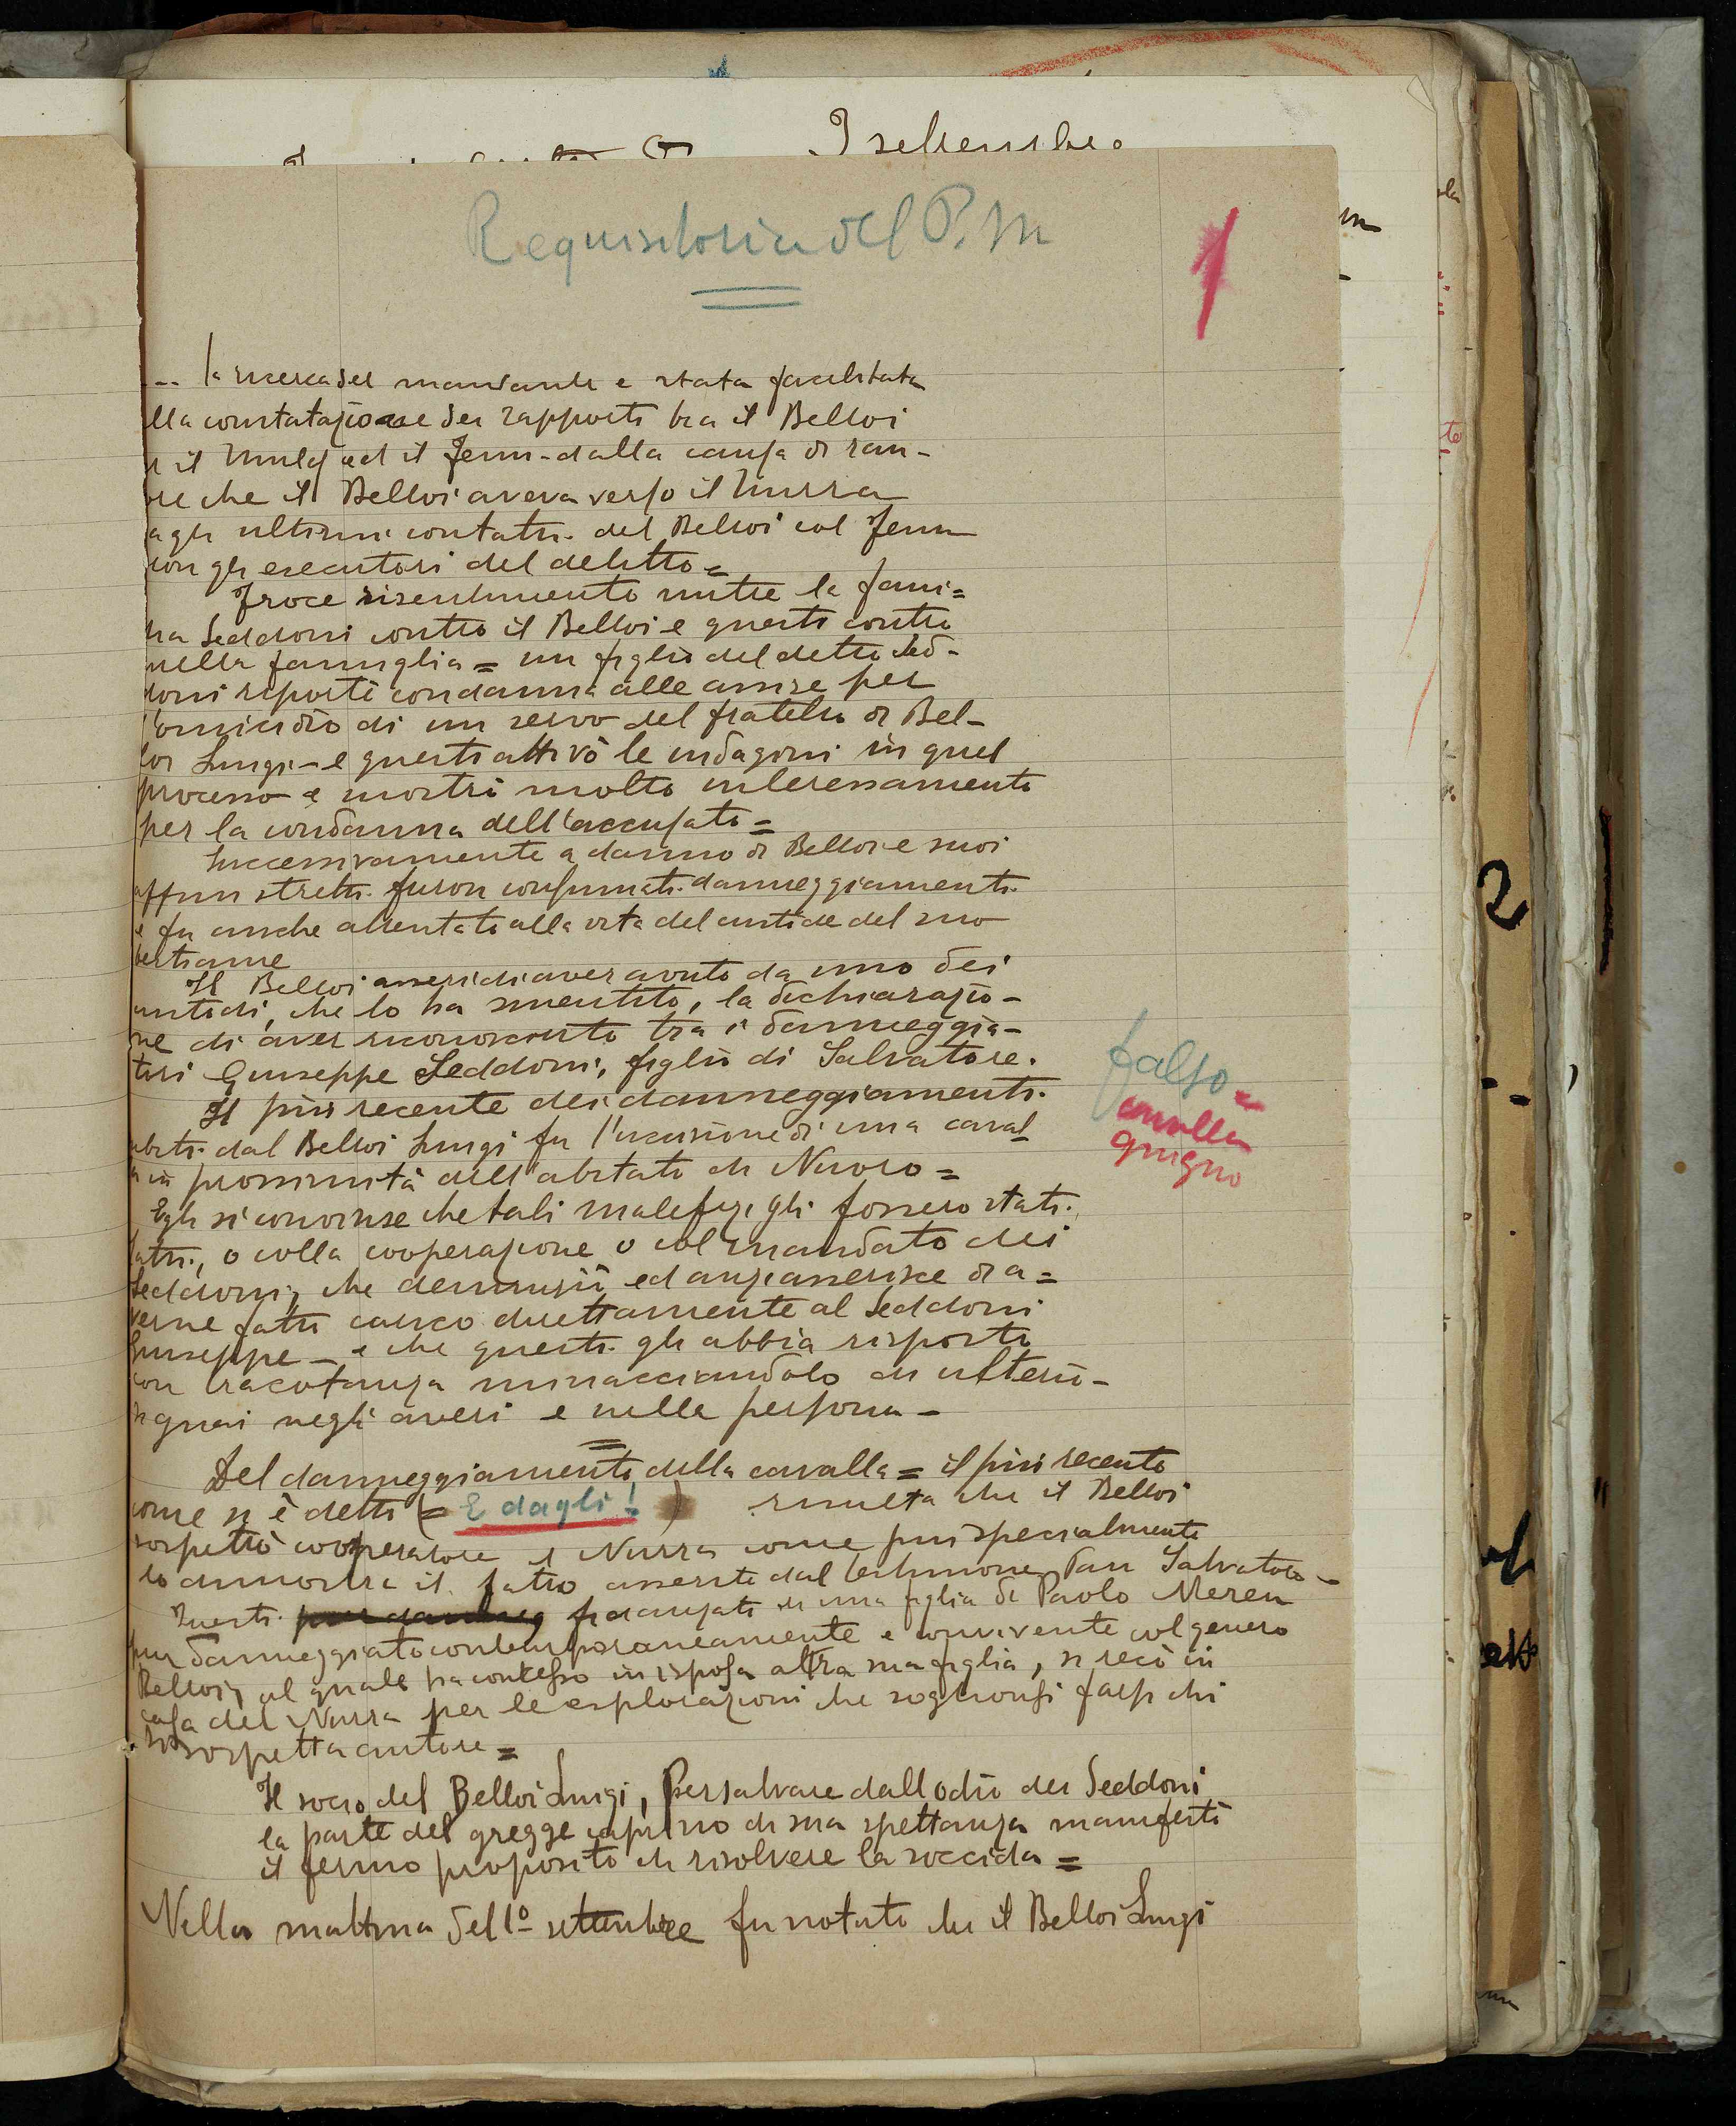 I settembre
Requisitoria del P. M
1
... la ricerca del mandante e stata facilitata
lla constatazione dei rapporti tra il Belloi
e il ed il Jenn - dalla causa di ran-
ore che il Belloi aveva verso il Nurra
agli ultimi contatti del Belloi col Jenn
con gli esecutori del delitto =
Froce risentimento nutre la fami=
lia Seddoni contro il Belloi e questi contro
quella famiglia = un figlio del detto Sed-
doni riportò condanna alle assise per
l'omicidio di un servo del fratello di Bel-
loi Luigi - e questi attivò le indagini in quel
processo e mostrò molto interessamento
per la condanna dell'accusato =
Successivamente a danno di Belloi e suoi
affini stretti furon consumati danneggiamenti
e fu anche attentato alla vita del custode del suo
bestiame
Il Belloi asserì di aver avuto da uno dei
custodi, che lo ha smentito, la dichiarazio-
ne di aver riconosciuto tra i danneggia-
tori Giuseppe Seddoni, figlio di Salvatore.
Il più recente dei danneggiamenti
ubiti dal Belloi Luigi fu l'uccisione di una caval-
a in prossimità dell'abitato di Nuoro =
falso =
cavalla
giugno
Egli si convinse che tali malefizi gli fossero stati
fatti, o colla cooperazione o col mandato dei
Seddoni, che denunziò ed anzi asserisce di a=
verne fatto carico direttamente al Seddoni
Giuseppe - e che questi gli abbia risposto
con tracotanza minacciandolo di ulterio-
ri guai negli averi e nella persona -
Del danneggiamento della cavalla = il più recente
come si è detto (= E dagli! ) risulta che il Belloi
sospettò cooperatore il Nurra come più specialmente
lo dimostra il fatto asserito dal testimone Pau Salvatore -
Questi fidanzato di una figlia di Paolo Mereu
pur danneggiato contemporaneamente e convivente col genero
Belloi, al quale ha concesso in isposa altra sua figlia, si recò in
casa del Nurra per le esplorazioni che soglionsi farsi chi
si sospetta autore =
Il socio del Belloi Luigi, per salvare dall'odio dei Seddoni
la parte del gregge caprino di sua spettanza manifestò
il fermo proposito di risolvere la soccida =
Nella mattina del 1º settembre fu notato che il Belloi Luigi